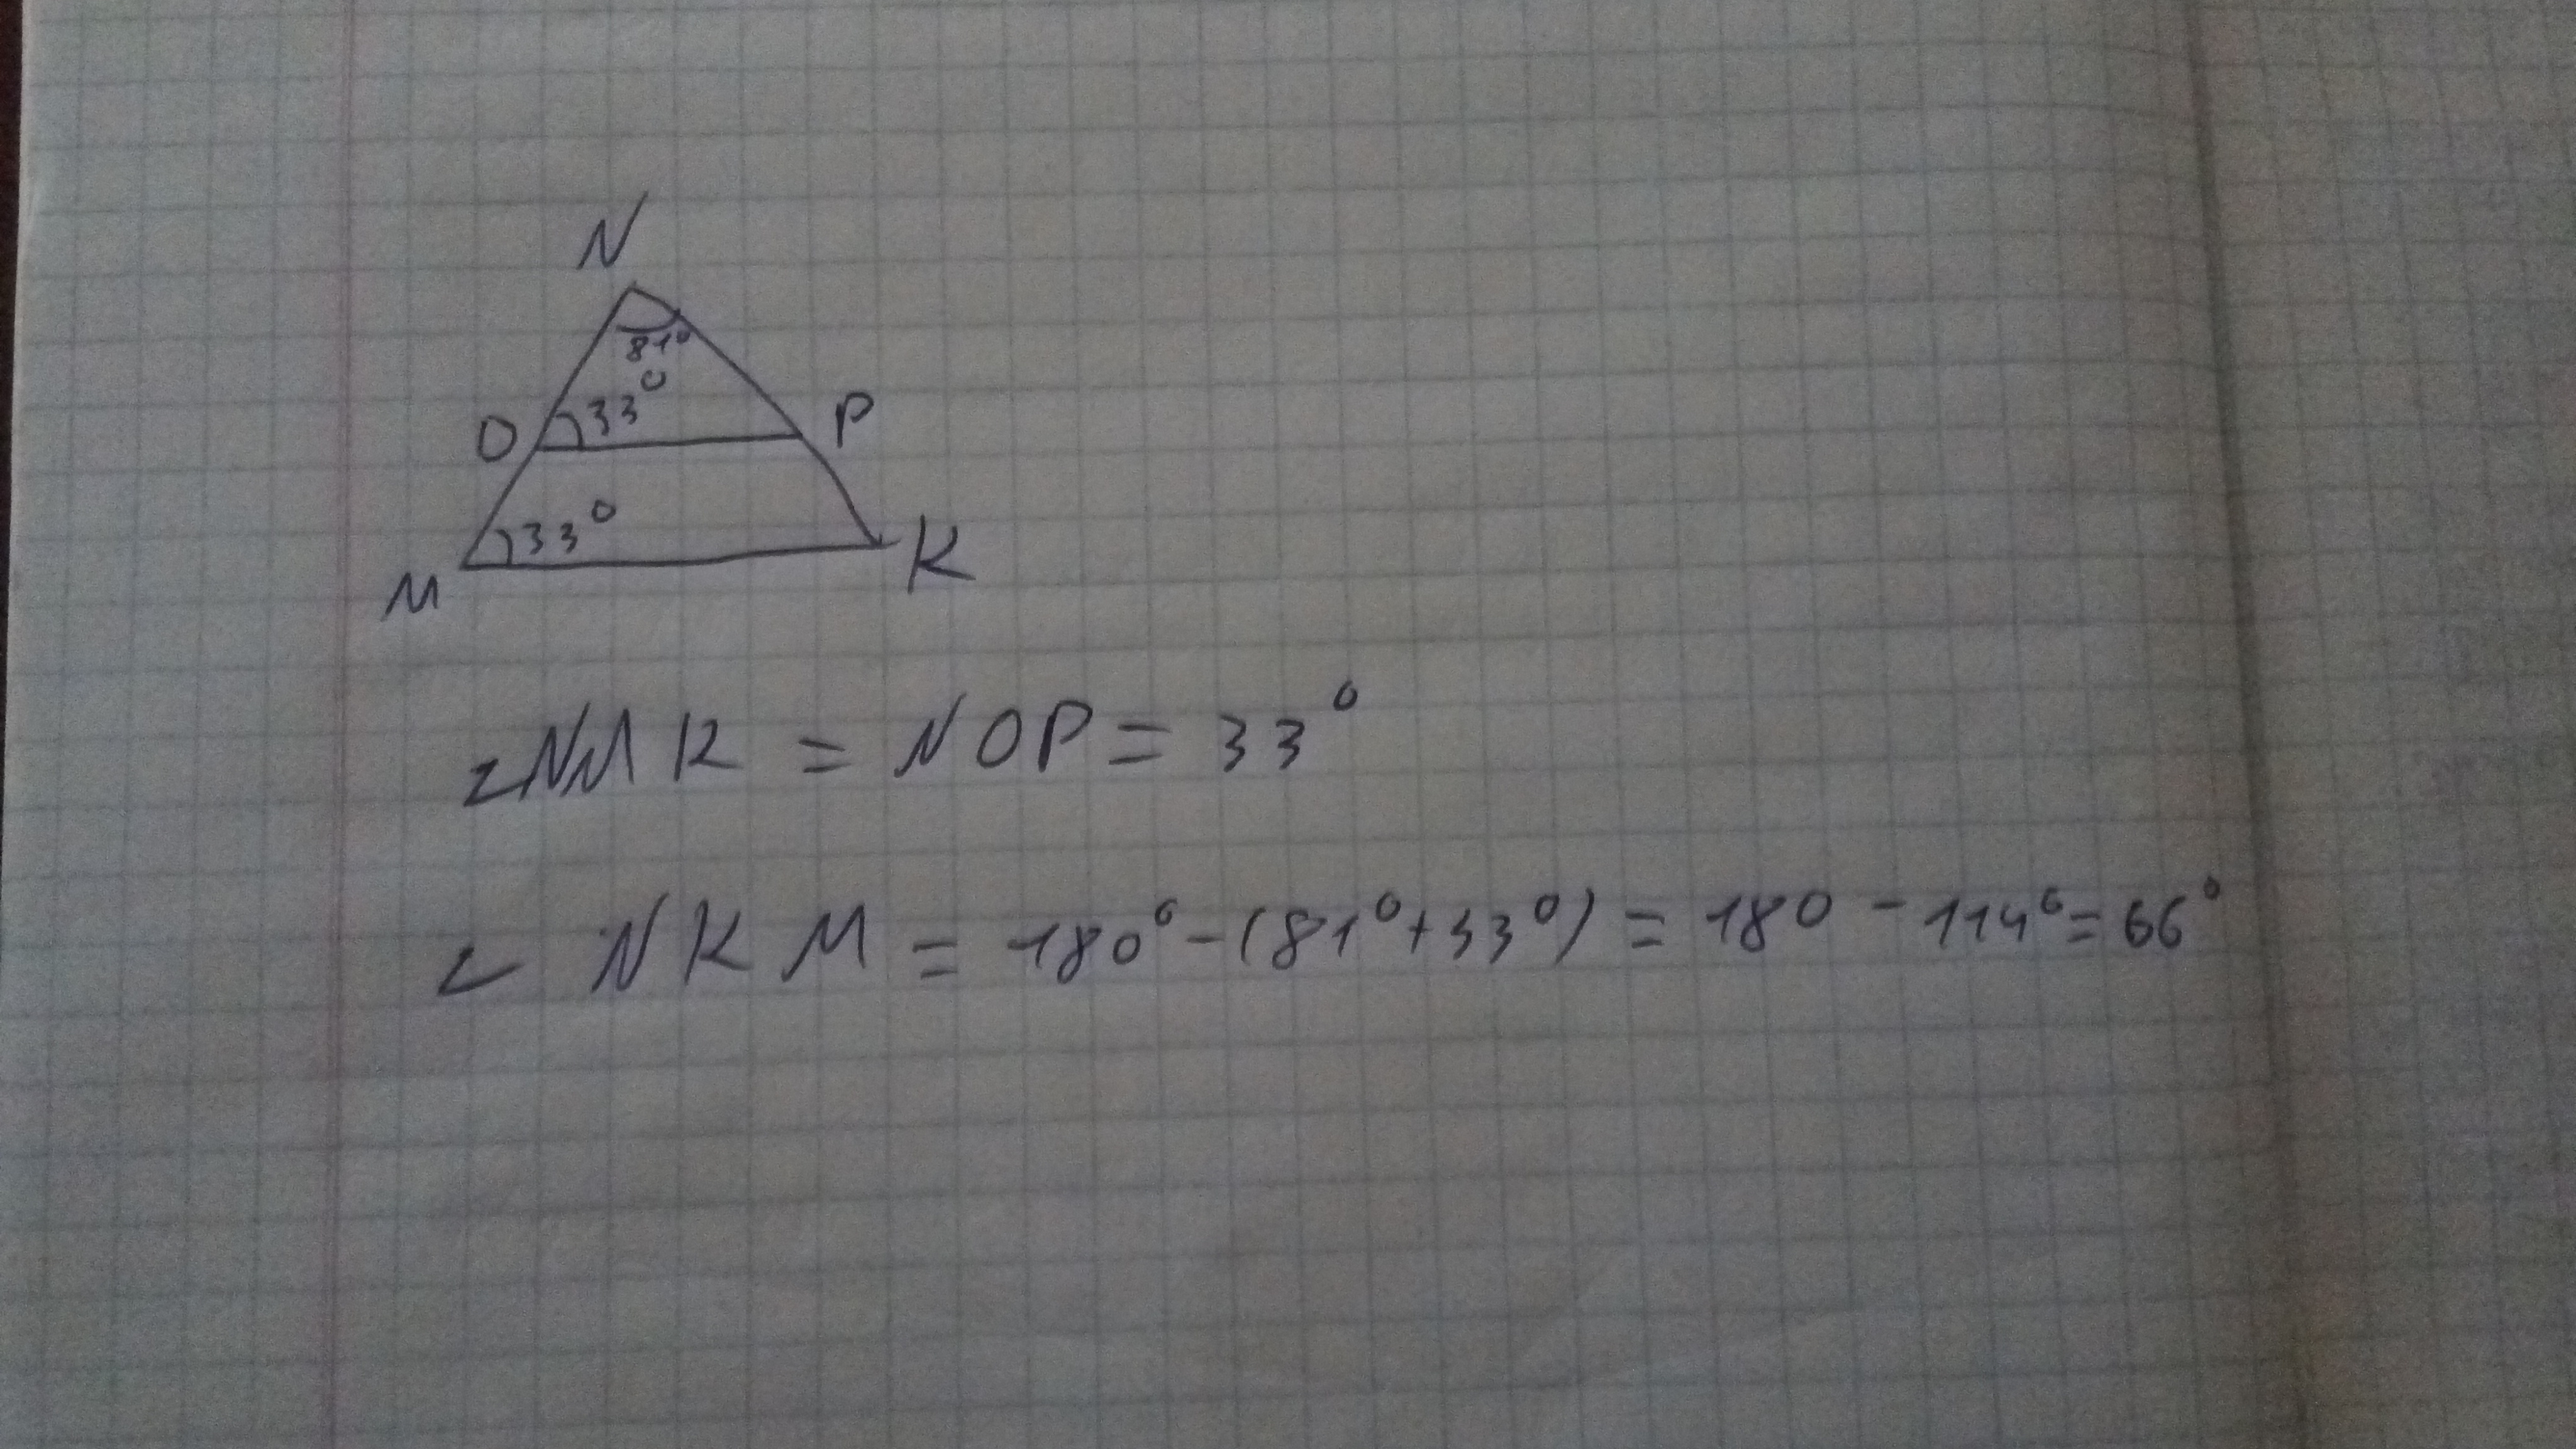 N
81°
O 33° P
33°
M K
∠NMK = NOP = 33°
∠ NKM = 180° - (81° + 33°) = 180 - 114° = 66°